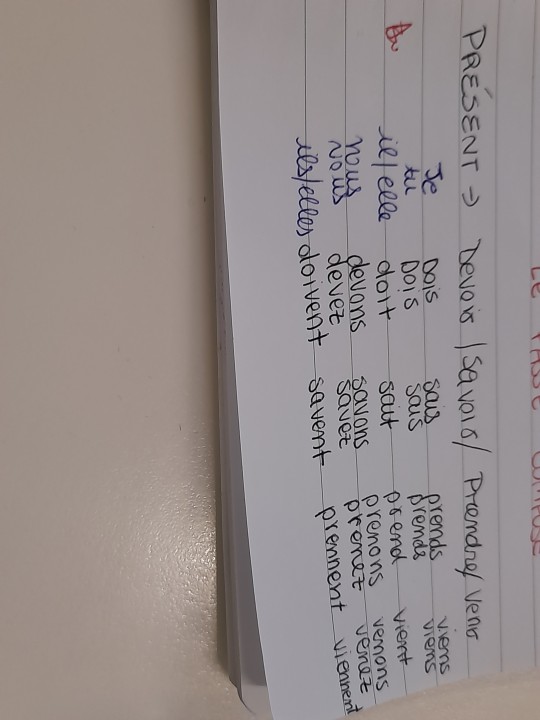 LE PASSÉ COMPOSÉ
PRÉSENT → Devoir / Savoir / Prendre / Venir
Je Dois sais prends viens
tu Dois sais prends viens
il/elle doit sait prend vient
nous devons savons prenons venons
vous devez savez prenez venez
ils/elles doivent savent prennent viennent